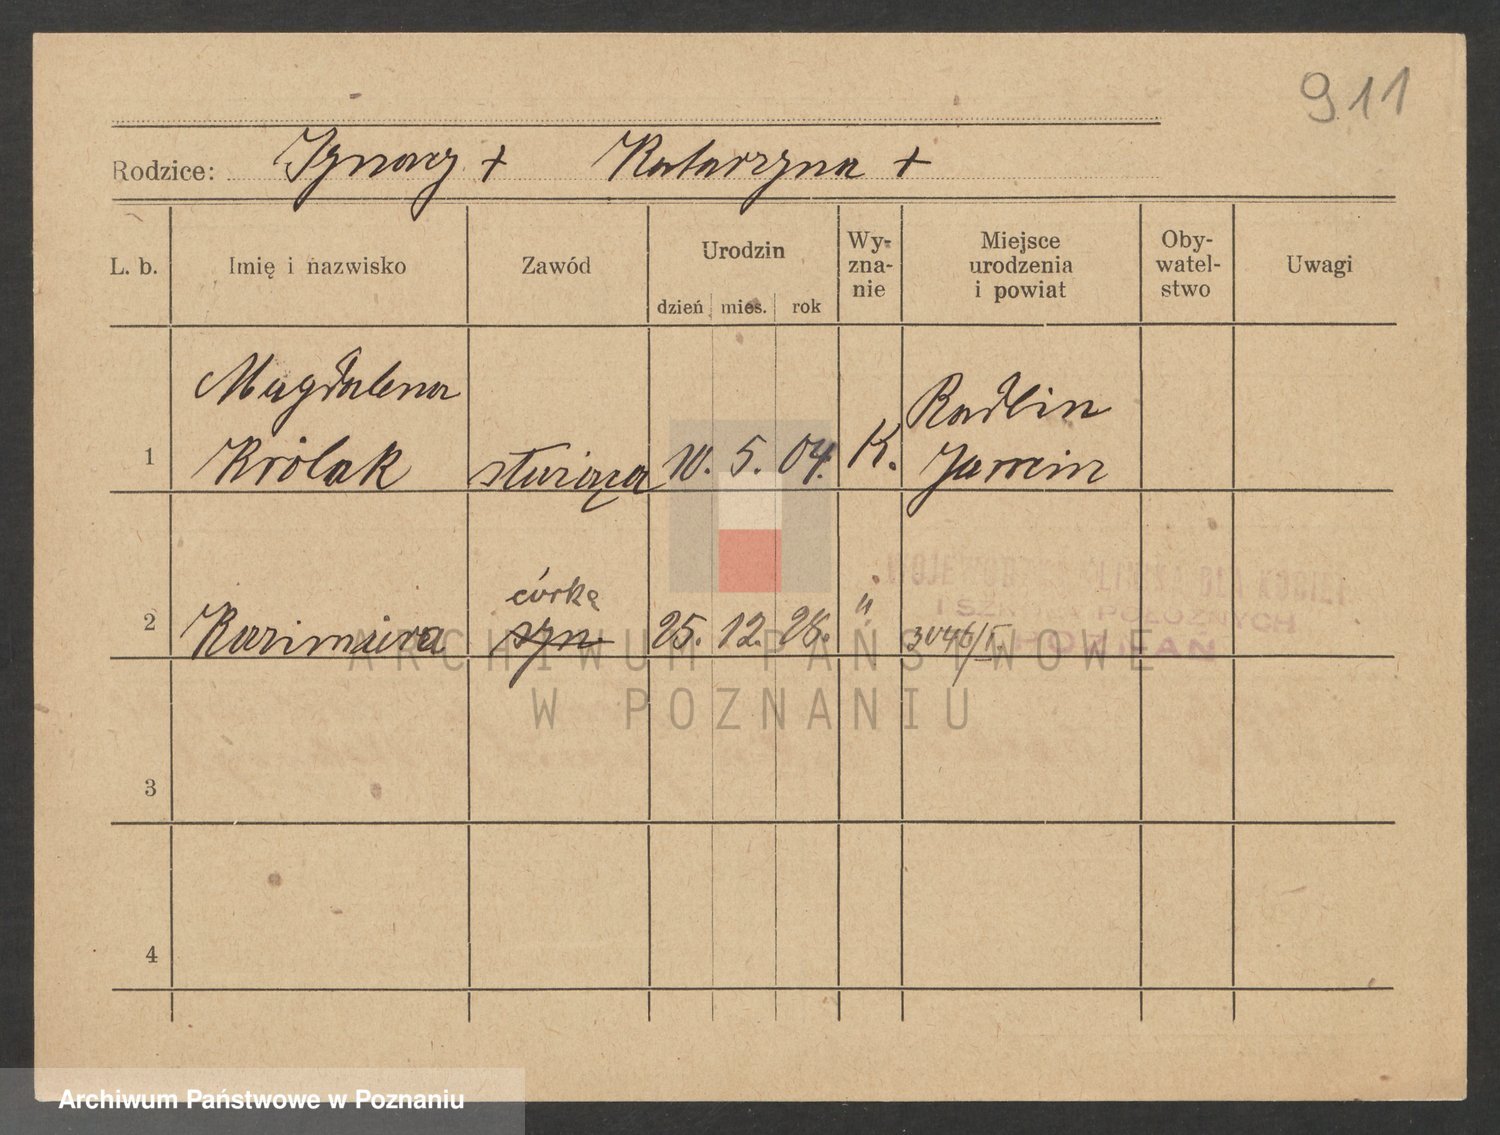 911
Rodzice: Ignacy + Katarzyna +
L. b. Imię i nazwisko Zawód Urodzin dzień mies. rok Wy-zna-nie Miejsce urodzenia i powiat Oby-watel-stwo Uwagi
Magdalena Radlin
1 Królak służąca 10. 5. 04. K. Jarocin
córka
2 Kazimiera syn 25. 12. 28. " 3046/I.
WOJEWÓDZKA KLINIKA DLA KOBIET
I SZKOŁA POŁOŻNYCH
POZNAŃ
ARCHIWUM PAŃSTWOWE
W POZNANIU
3
4
Archiwum Państwowe w Poznaniu